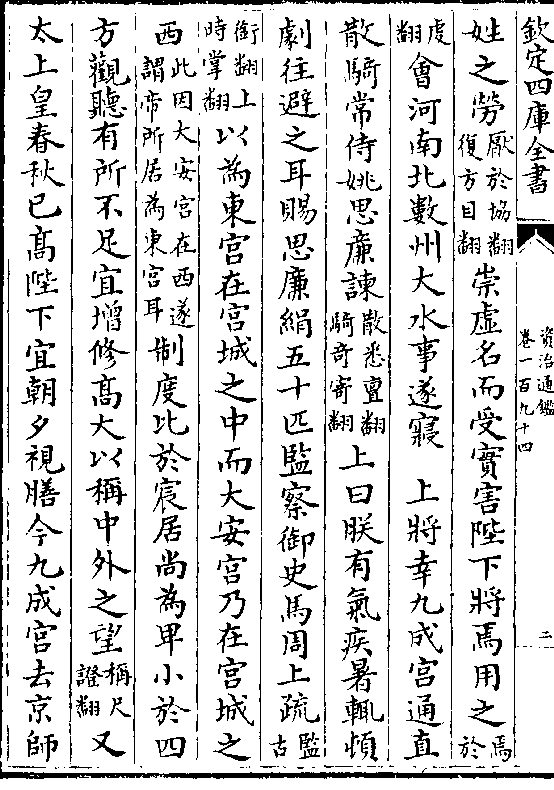 欽定四庫全書
資治通鑑
卷一百九十四
二
姓之勞厭於協翻復方目翻崇虛名而受實害陛下將焉用之焉於
䖍翻會河南北數州大水事遂寢　上將幸九成宮通直
散騎常侍姚思廉諫散悉亶翻騎奇寄翻上曰朕有氣疾暑輒頓
劇往避之耳賜思廉絹五十匹監察御史馬周上疏監古
銜翻上時掌翻以為東宮在宮城之中而大安宮乃在宮城之
西此因大安宮在西遂謂帝所居為東宮耳制度比於宸居尚為卑小於四
方觀聽有所不足宜增修高大以稱中外之望稱尺證翻又
太上皇春秋已高陛下宜朝夕視膳今九成宮去京師